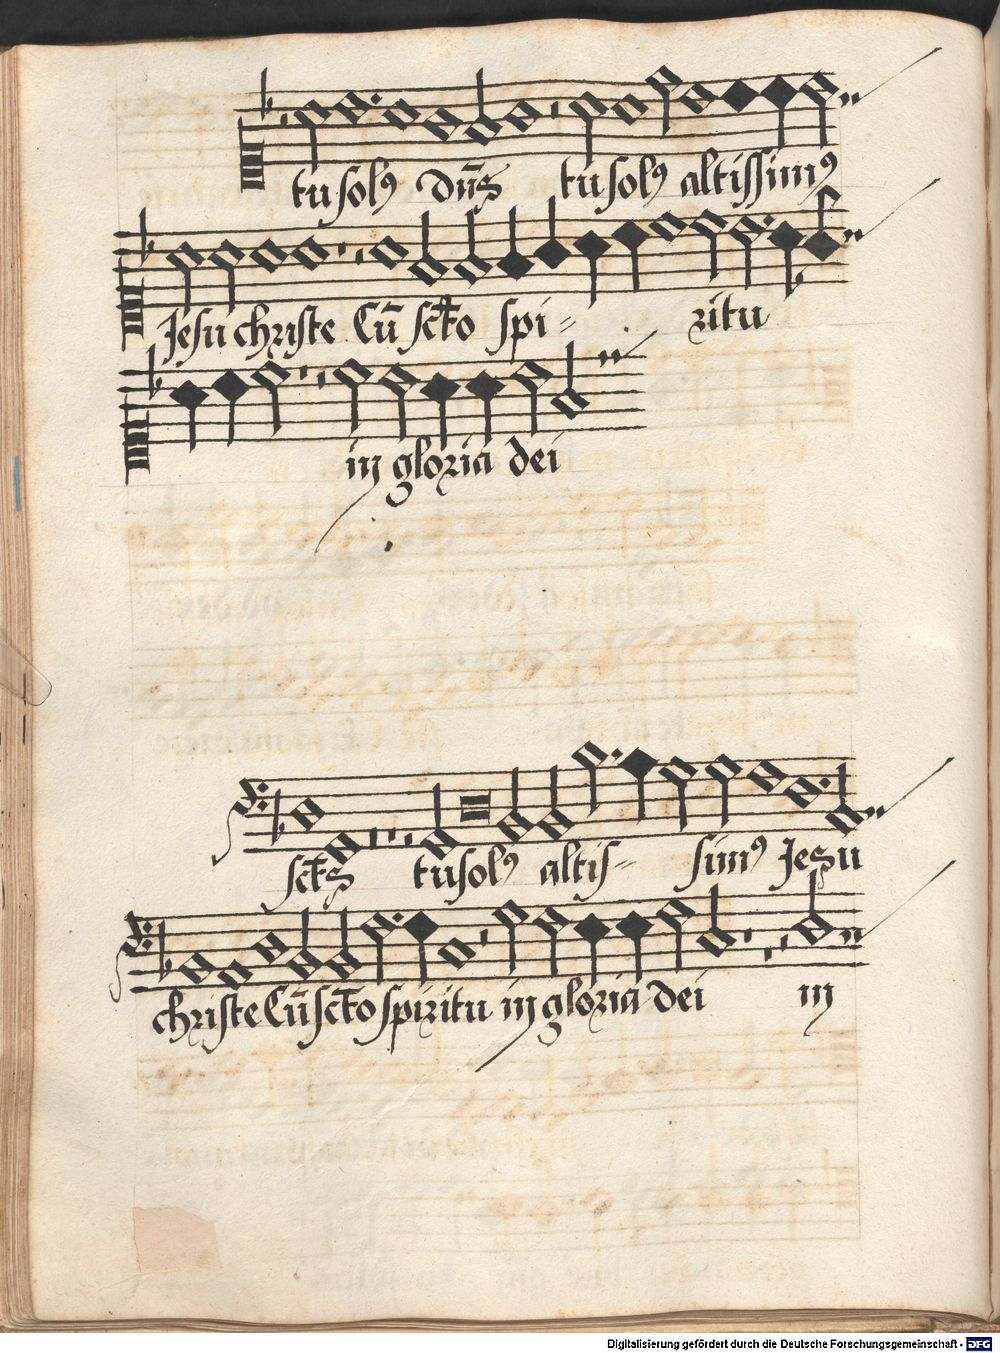 tu solꝰ dn̄s tu solꝰ altissimꝰ
Jesu christe Cū sc̄to spi= ritu
in gloria dei
sc̄ts tu solꝰ altis= simꝰ Jesu
christe Cū sc̄to spiritu in gloria dei in
Digitalisierung gefördert durch die Deutsche Forschungsgemeinschaft - DFG